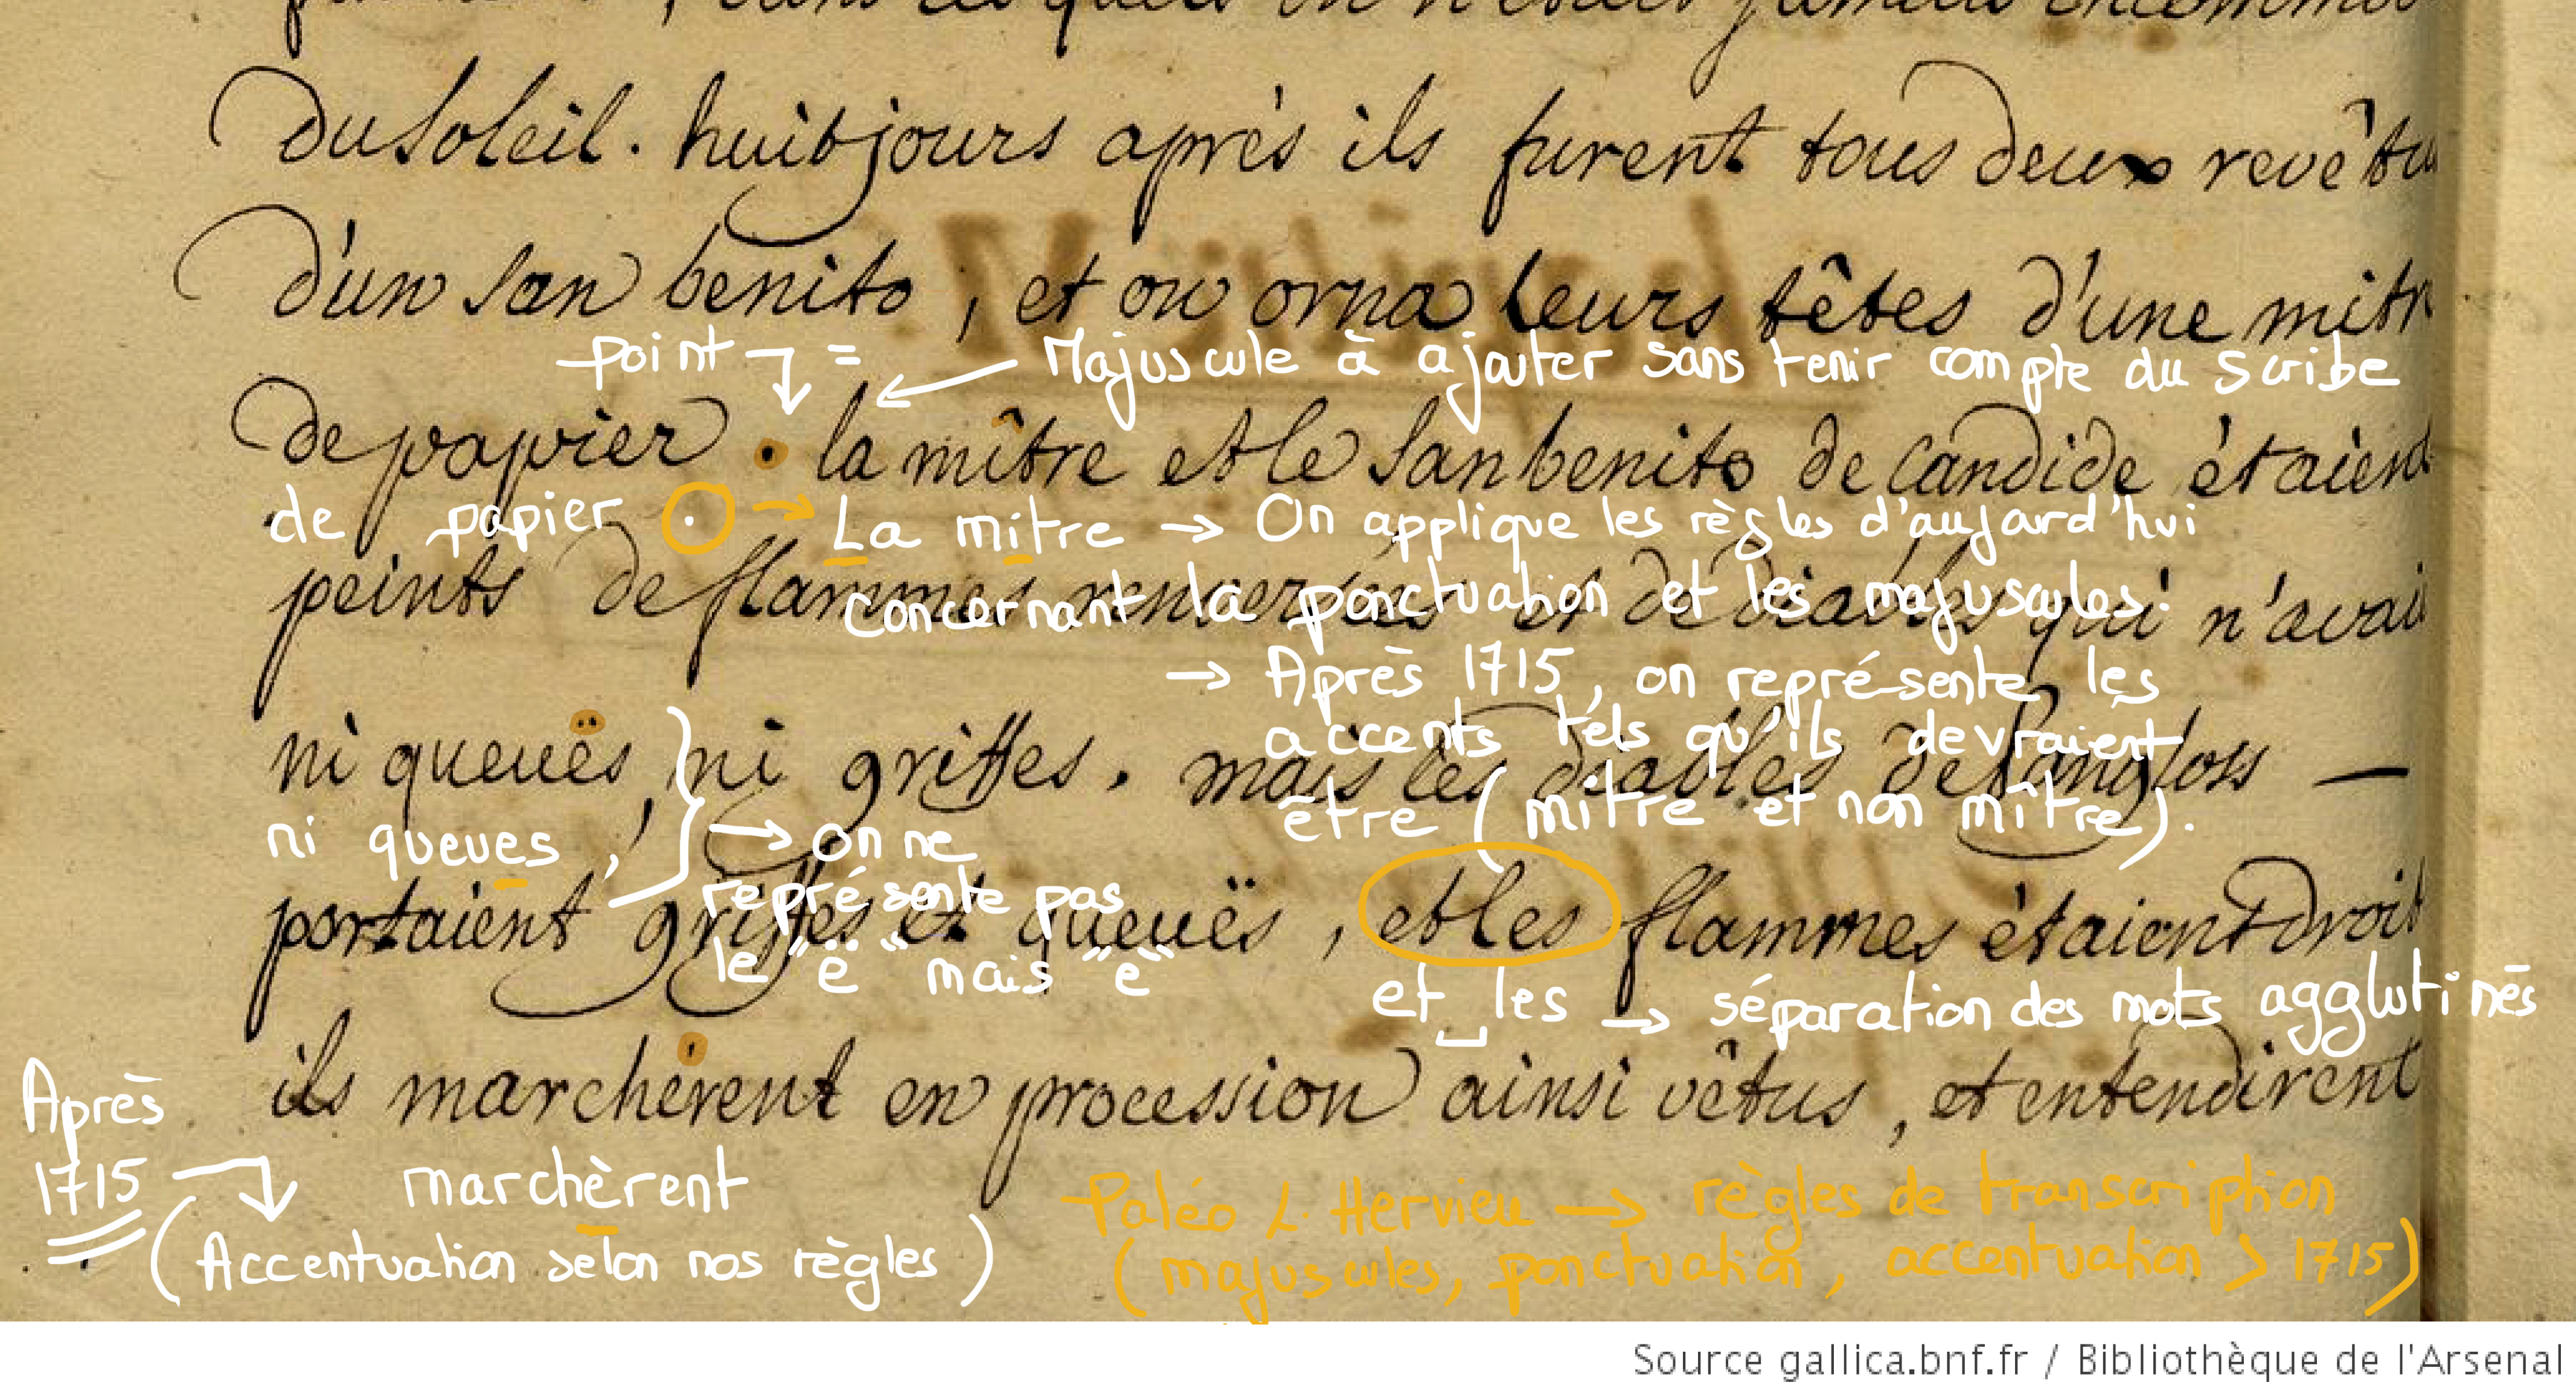 dans lesquels on n'était jamais incommo
du soleil. huit jours après ils furent tous deux revêtu
d'un san benito, et on orna leurs têtes d'une mitr
point = Majuscule à ajouter sans tenir compte du scribe
de papier. la mître et le san benito de candide étaient
de papier . → La mitre → On applique les règles d'aujourd'hui
peints de flammes renversées et de diables qui n'avai
concernant la ponctuation et les majuscules.
→ Après 1715, on représente les
accents tels qu'ils devraient
ni queuës, ni griffes. mais les diables de Pangloss —
être (mitre et non mître).
ni queues, → on ne
représente pas
portaient griffes et queuës, et les flammes étaient droit
le "ë" mais "e"
et les → séparation des mots agglutinés
ils marchérent en procession ainsi vêtus, et entendirent
Après
1715
marchèrent
(Accentuation selon nos règles)
Paléo L. Hervieu → règles de transcription
(majuscules, ponctuation, accentuation > 1715)
Source gallica.bnf.fr / Bibliothèque de l'Arsenal